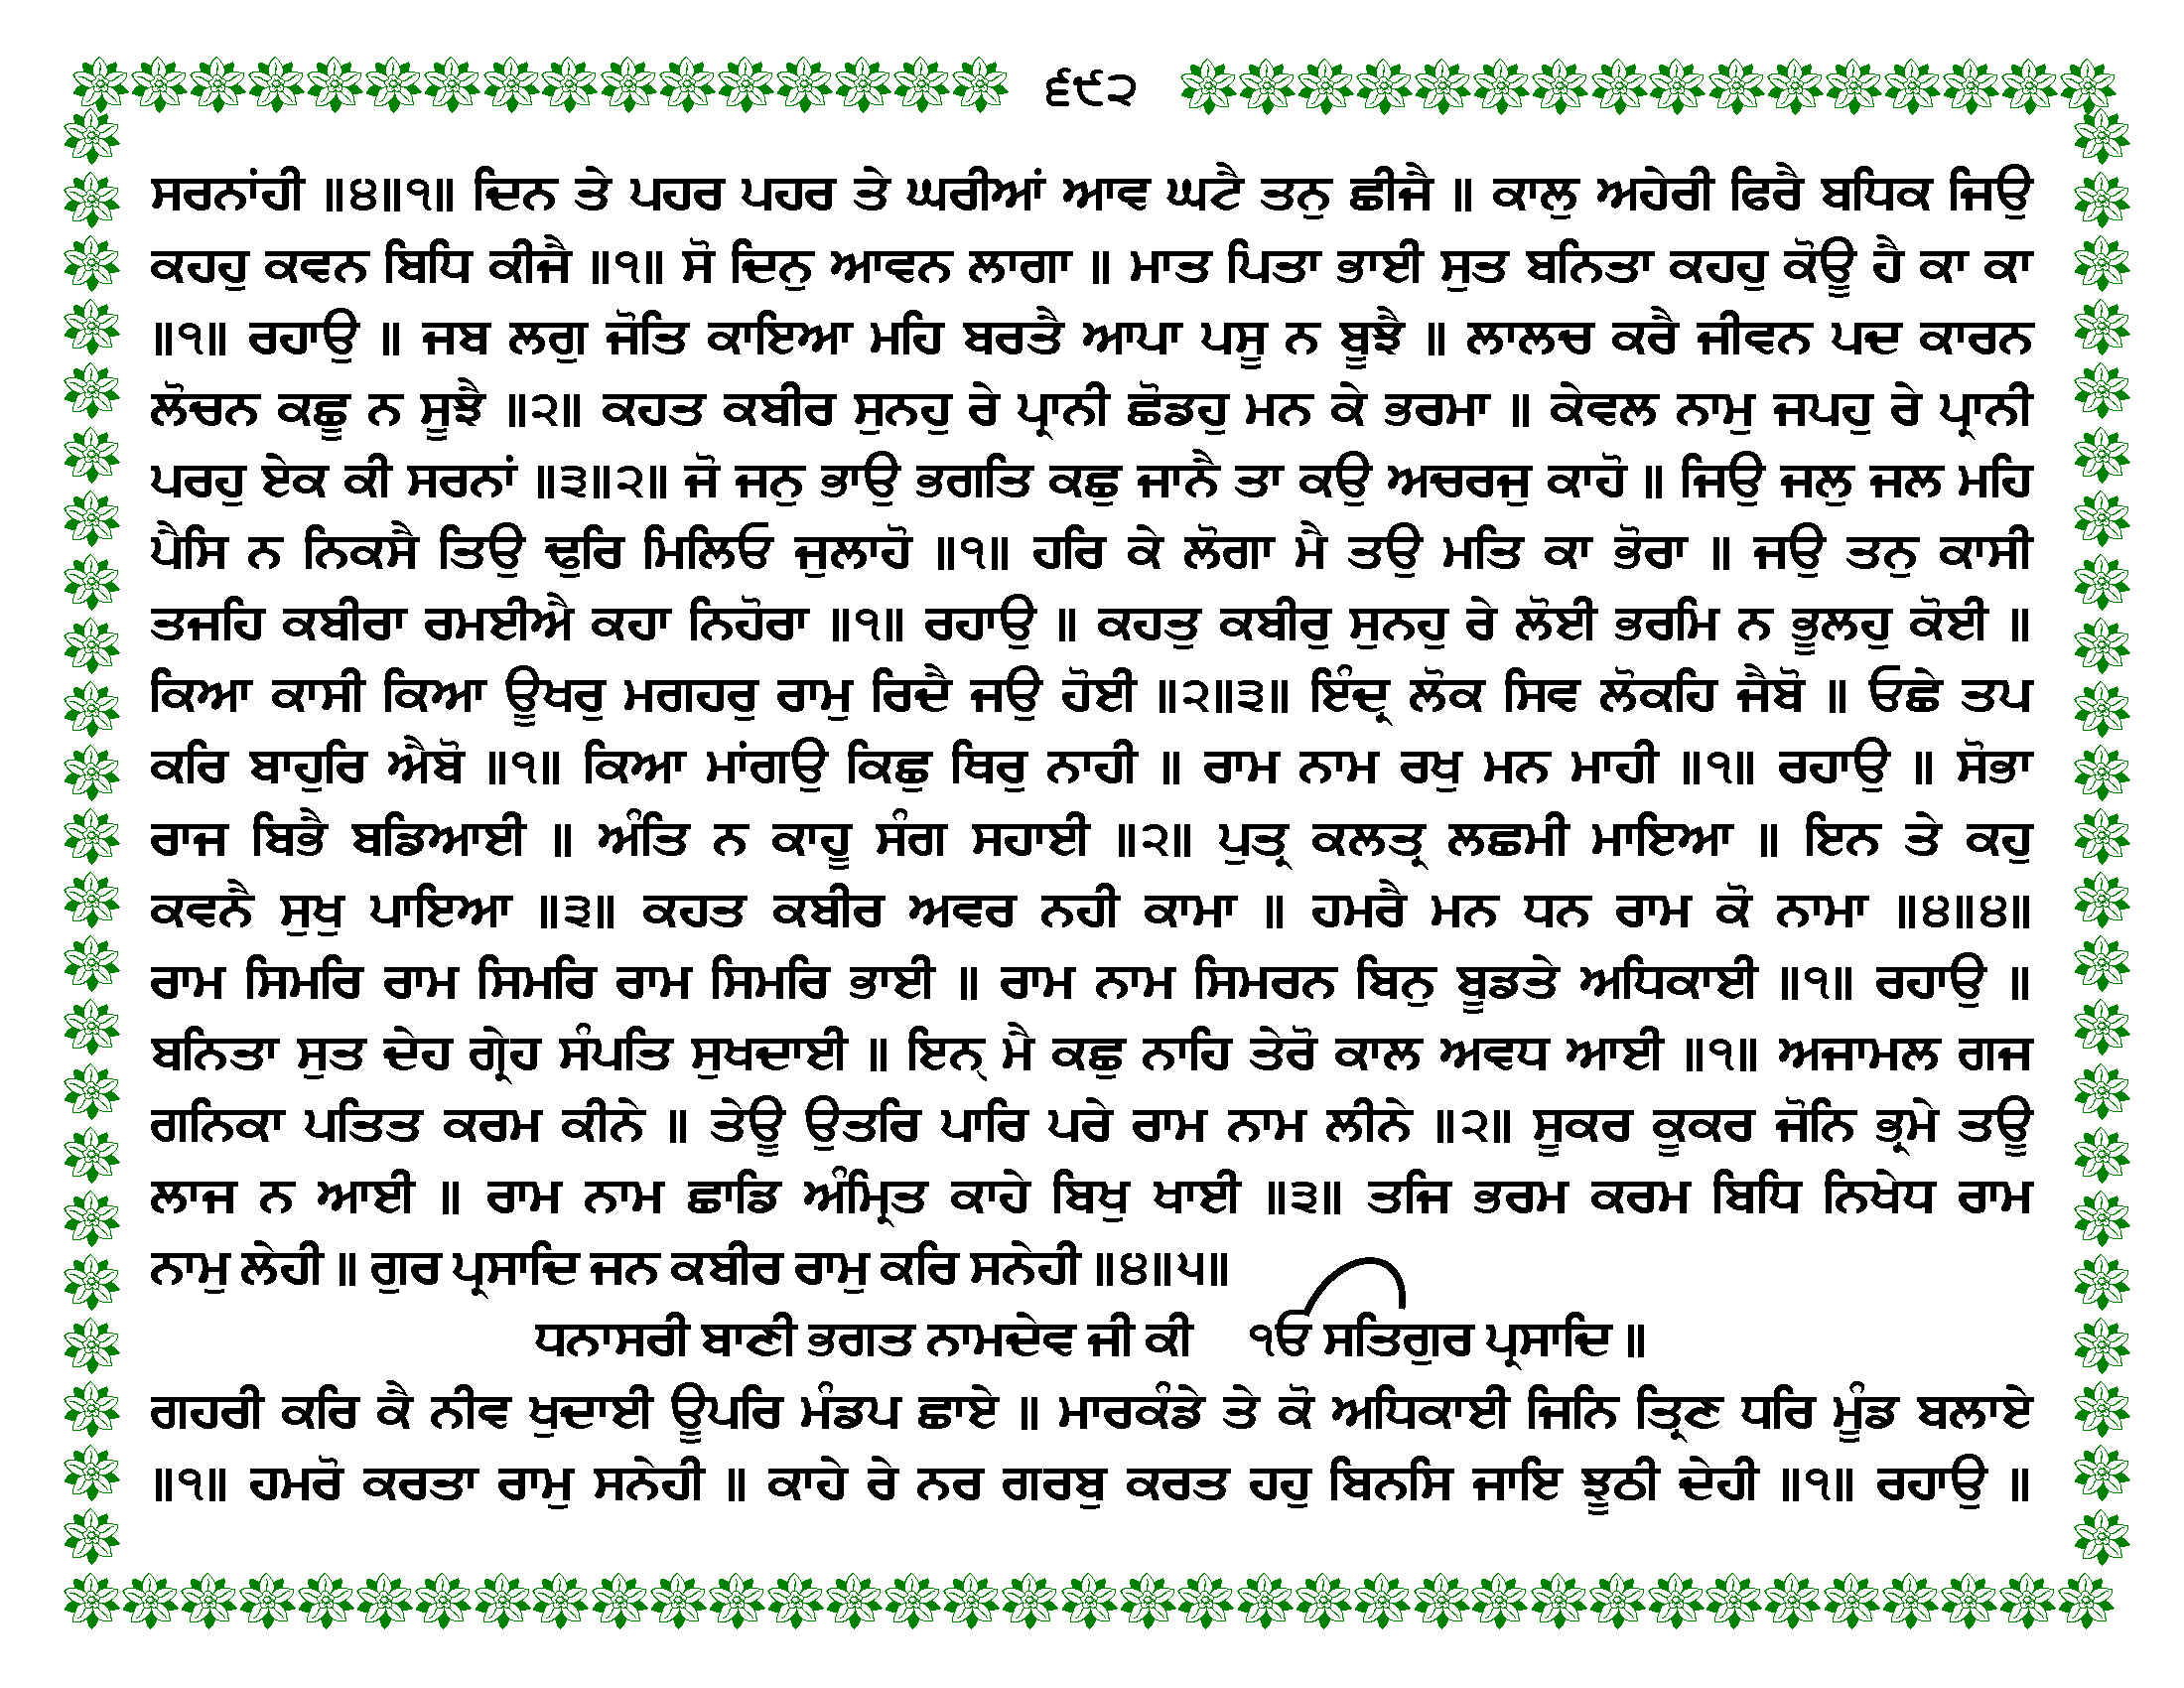 ੬੯੨
ਸਰਨਾਂਹੀ ॥੪॥੧॥ ਦਿਨ ਤੇ ਪਹਰ ਪਹਰ ਤੇ ਘਰੀਆਂ ਆਵ ਘਟੈ ਤਨੁ ਛੀਜੈ ॥ ਕਾਲੁ ਅਹੇਰੀ ਫਿਰੈ ਬਧਿਕ ਜਿਉ
ਕਹਹੁ ਕਵਨ ਬਿਧਿ ਕੀਜੈ ॥੧॥ ਸੋ ਦਿਨੁ ਆਵਨ ਲਾਗਾ ॥ ਮਾਤ ਪਿਤਾ ਭਾਈ ਸੁਤ ਬਨਿਤਾ ਕਹਹੁ ਕੋਊ ਹੈ ਕਾ ਕਾ
॥੧॥ ਰਹਾਉ ॥ ਜਬ ਲਗੁ ਜੋਤਿ ਕਾਇਆ ਮਹਿ ਬਰਤੈ ਆਪਾ ਪਸੂ ਨ ਬੂਝੈ ॥ ਲਾਲਚ ਕਰੈ ਜੀਵਨ ਪਦ ਕਾਰਨ
ਲੋਚਨ ਕਛੂ ਨ ਸੂਝੈ ॥੨॥ ਕਹਤ ਕਬੀਰ ਸੁਨਹੁ ਰੇ ਪ੍ਰਾਨੀ ਛੋਡਹੁ ਮਨ ਕੇ ਭਰਮਾ ॥ ਕੇਵਲ ਨਾਮੁ ਜਪਹੁ ਰੇ ਪ੍ਰਾਨੀ
ਪਰਹੁ ਏਕ ਕੀ ਸਰਨਾਂ ॥੩॥੨॥ ਜੋ ਜਨੁ ਭਾਉ ਭਗਤਿ ਕਛੁ ਜਾਨੈ ਤਾ ਕਉ ਅਚਰਜੁ ਕਾਹੋ ॥ ਜਿਉ ਜਲੁ ਜਲ ਮਹਿ
ਪੈਸਿ ਨ ਨਿਕਸੈ ਤਿਉ ਢੁਰਿ ਮਿਲਿਓ ਜੁਲਾਹੋ ॥੧॥ ਹਰਿ ਕੇ ਲੋਗਾ ਮੈ ਤਉ ਮਤਿ ਕਾ ਭੋਰਾ ॥ ਜਉ ਤਨੁ ਕਾਸੀ
ਤਜਹਿ ਕਬੀਰਾ ਰਮਈਐ ਕਹਾ ਨਿਹੋਰਾ ॥੧॥ ਰਹਾਉ ॥ ਕਹਤੁ ਕਬੀਰੁ ਸੁਨਹੁ ਰੇ ਲੋਈ ਭਰਮਿ ਨ ਭੂਲਹੁ ਕੋਈ ॥
ਕਿਆ ਕਾਸੀ ਕਿਆ ਊਖਰੁ ਮਗਹਰੁ ਰਾਮੁ ਰਿਦੈ ਜਉ ਹੋਈ ॥੨॥੩॥ ਇੰਦ੍ਰ ਲੋਕ ਸਿਵ ਲੋਕਹਿ ਜੈਬੋ ॥ ਓਛੇ ਤਪ
ਕਰਿ ਬਾਹੁਰਿ ਐਬੋ ॥੧॥ ਕਿਆ ਮਾਂਗਉ ਕਿਛੁ ਥਿਰੁ ਨਾਹੀ ॥ ਰਾਮ ਨਾਮ ਰਖੁ ਮਨ ਮਾਹੀ ॥੧॥ ਰਹਾਉ ॥ ਸੋਭਾ
ਰਾਜ ਬਿਭੈ ਬਡਿਆਈ ॥ ਅੰਤਿ ਨ ਕਾਹੂ ਸੰਗ ਸਹਾਈ ॥੨॥ ਪੁਤ੍ਰ ਕਲਤ੍ਰ ਲਛਮੀ ਮਾਇਆ ॥ ਇਨ ਤੇ ਕਹੁ
ਕਵਨੈ ਸੁਖੁ ਪਾਇਆ ॥੩॥ ਕਹਤ ਕਬੀਰ ਅਵਰ ਨਹੀ ਕਾਮਾ ॥ ਹਮਰੈ ਮਨ ਧਨ ਰਾਮ ਕੋ ਨਾਮਾ ॥੪॥੪॥
ਰਾਮ ਸਿਮਰਿ ਰਾਮ ਸਿਮਰਿ ਰਾਮ ਸਿਮਰਿ ਭਾਈ ॥ ਰਾਮ ਨਾਮ ਸਿਮਰਨ ਬਿਨੁ ਬੂਡਤੇ ਅਧਿਕਾਈ ॥੧॥ ਰਹਾਉ ॥
ਬਨਿਤਾ ਸੁਤ ਦੇਹ ਗ੍ਰੇਹ ਸੰਪਤਿ ਸੁਖਦਾਈ ॥ ਇਨ੍ ਮੈ ਕਛੁ ਨਾਹਿ ਤੇਰੋ ਕਾਲ ਅਵਧ ਆਈ ॥੧॥ ਅਜਾਮਲ ਗਜ
ਗਨਿਕਾ ਪਤਿਤ ਕਰਮ ਕੀਨੇ ॥ ਤੇਊ ਉਤਰਿ ਪਾਰਿ ਪਰੇ ਰਾਮ ਨਾਮ ਲੀਨੇ ॥੨॥ ਸੂਕਰ ਕੂਕਰ ਜੋਨਿ ਭ੍ਰਮੇ ਤਊ
ਲਾਜ ਨ ਆਈ ॥ ਰਾਮ ਨਾਮ ਛਾਡਿ ਅੰਮ੍ਰਿਤ ਕਾਹੇ ਬਿਖੁ ਖਾਈ ॥੩॥ ਤਜਿ ਭਰਮ ਕਰਮ ਬਿਧਿ ਨਿਖੇਧ ਰਾਮ
ਨਾਮੁ ਲੇਹੀ ॥ ਗੁਰ ਪ੍ਰਸਾਦਿ ਜਨ ਕਬੀਰ ਰਾਮੁ ਕਰਿ ਸਨੇਹੀ ॥੪॥੫॥
ਧਨਾਸਰੀ ਬਾਣੀ ਭਗਤ ਨਾਮਦੇਵ ਜੀ ਕੀ ੴ ਸਤਿਗੁਰ ਪ੍ਰਸਾਦਿ ॥
ਗਹਰੀ ਕਰਿ ਕੈ ਨੀਵ ਖੁਦਾਈ ਊਪਰਿ ਮੰਡਪ ਛਾਏ ॥ ਮਾਰਕੰਡੇ ਤੇ ਕੋ ਅਧਿਕਾਈ ਜਿਨਿ ਤ੍ਰਿਣ ਧਰਿ ਮੂੰਡ ਬਲਾਏ
॥੧॥ ਹਮਰੋ ਕਰਤਾ ਰਾਮੁ ਸਨੇਹੀ ॥ ਕਾਹੇ ਰੇ ਨਰ ਗਰਬੁ ਕਰਤ ਹਹੁ ਬਿਨਸਿ ਜਾਇ ਝੂਠੀ ਦੇਹੀ ॥੧॥ ਰਹਾਉ ॥